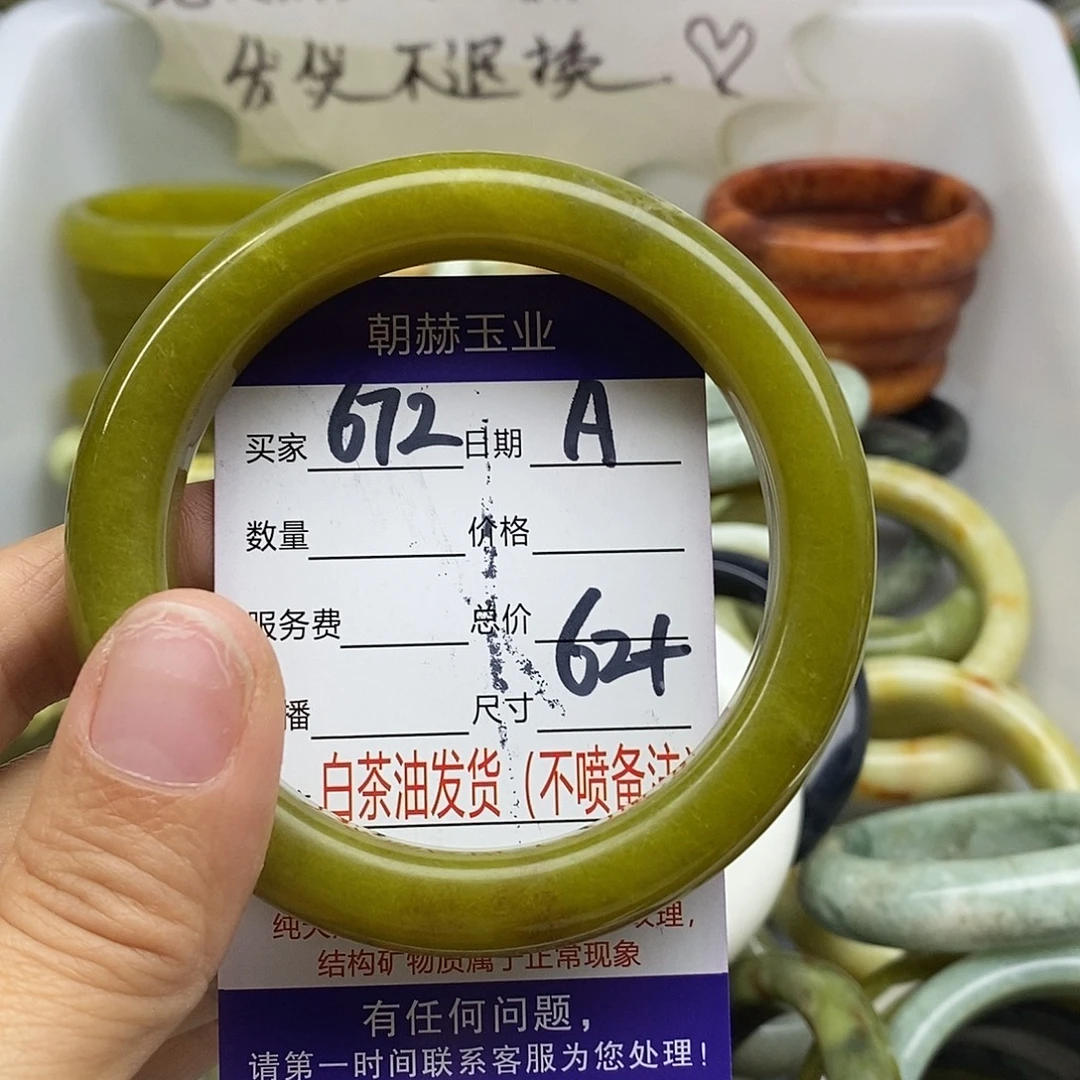 发货不退换
朝赫玉业
买家 672 日期 A
数量 价格
服务费 总价 624
播 尺寸
白茶油发货(不喷备注
结构矿物质属于正常现象
有任何问题,
请第一时间联系客服为您处理!